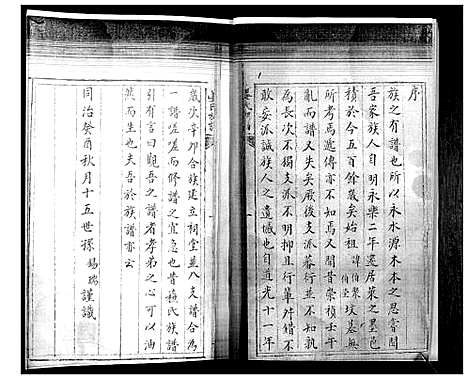 序
族之有譜也所以永水源木本之思音問
吾家族人自明永樂二年遷居萊之墨邑
積於今五百餘歲矣始祖諱伯榮伯奎墳墓無
所考焉遞傳亦不知焉又聞昔崇禎壬午
亂而譜又失矣厥後支派蕃行並不知孰
為長次不獨支派不明抑且行輩舛錯不
敢妄派誠族人之遺憾也自道光十一年
歲次辛卯合族建立祠堂並八支譜合為
一譜嗟嗟而修譜之宜急也昔蘇氏族譜
引有言曰觀吾之譜者孝弟之心可以油
然而生也夫吾於族譜亦云
同治癸酉秋月十五世孫錫瑞謹識